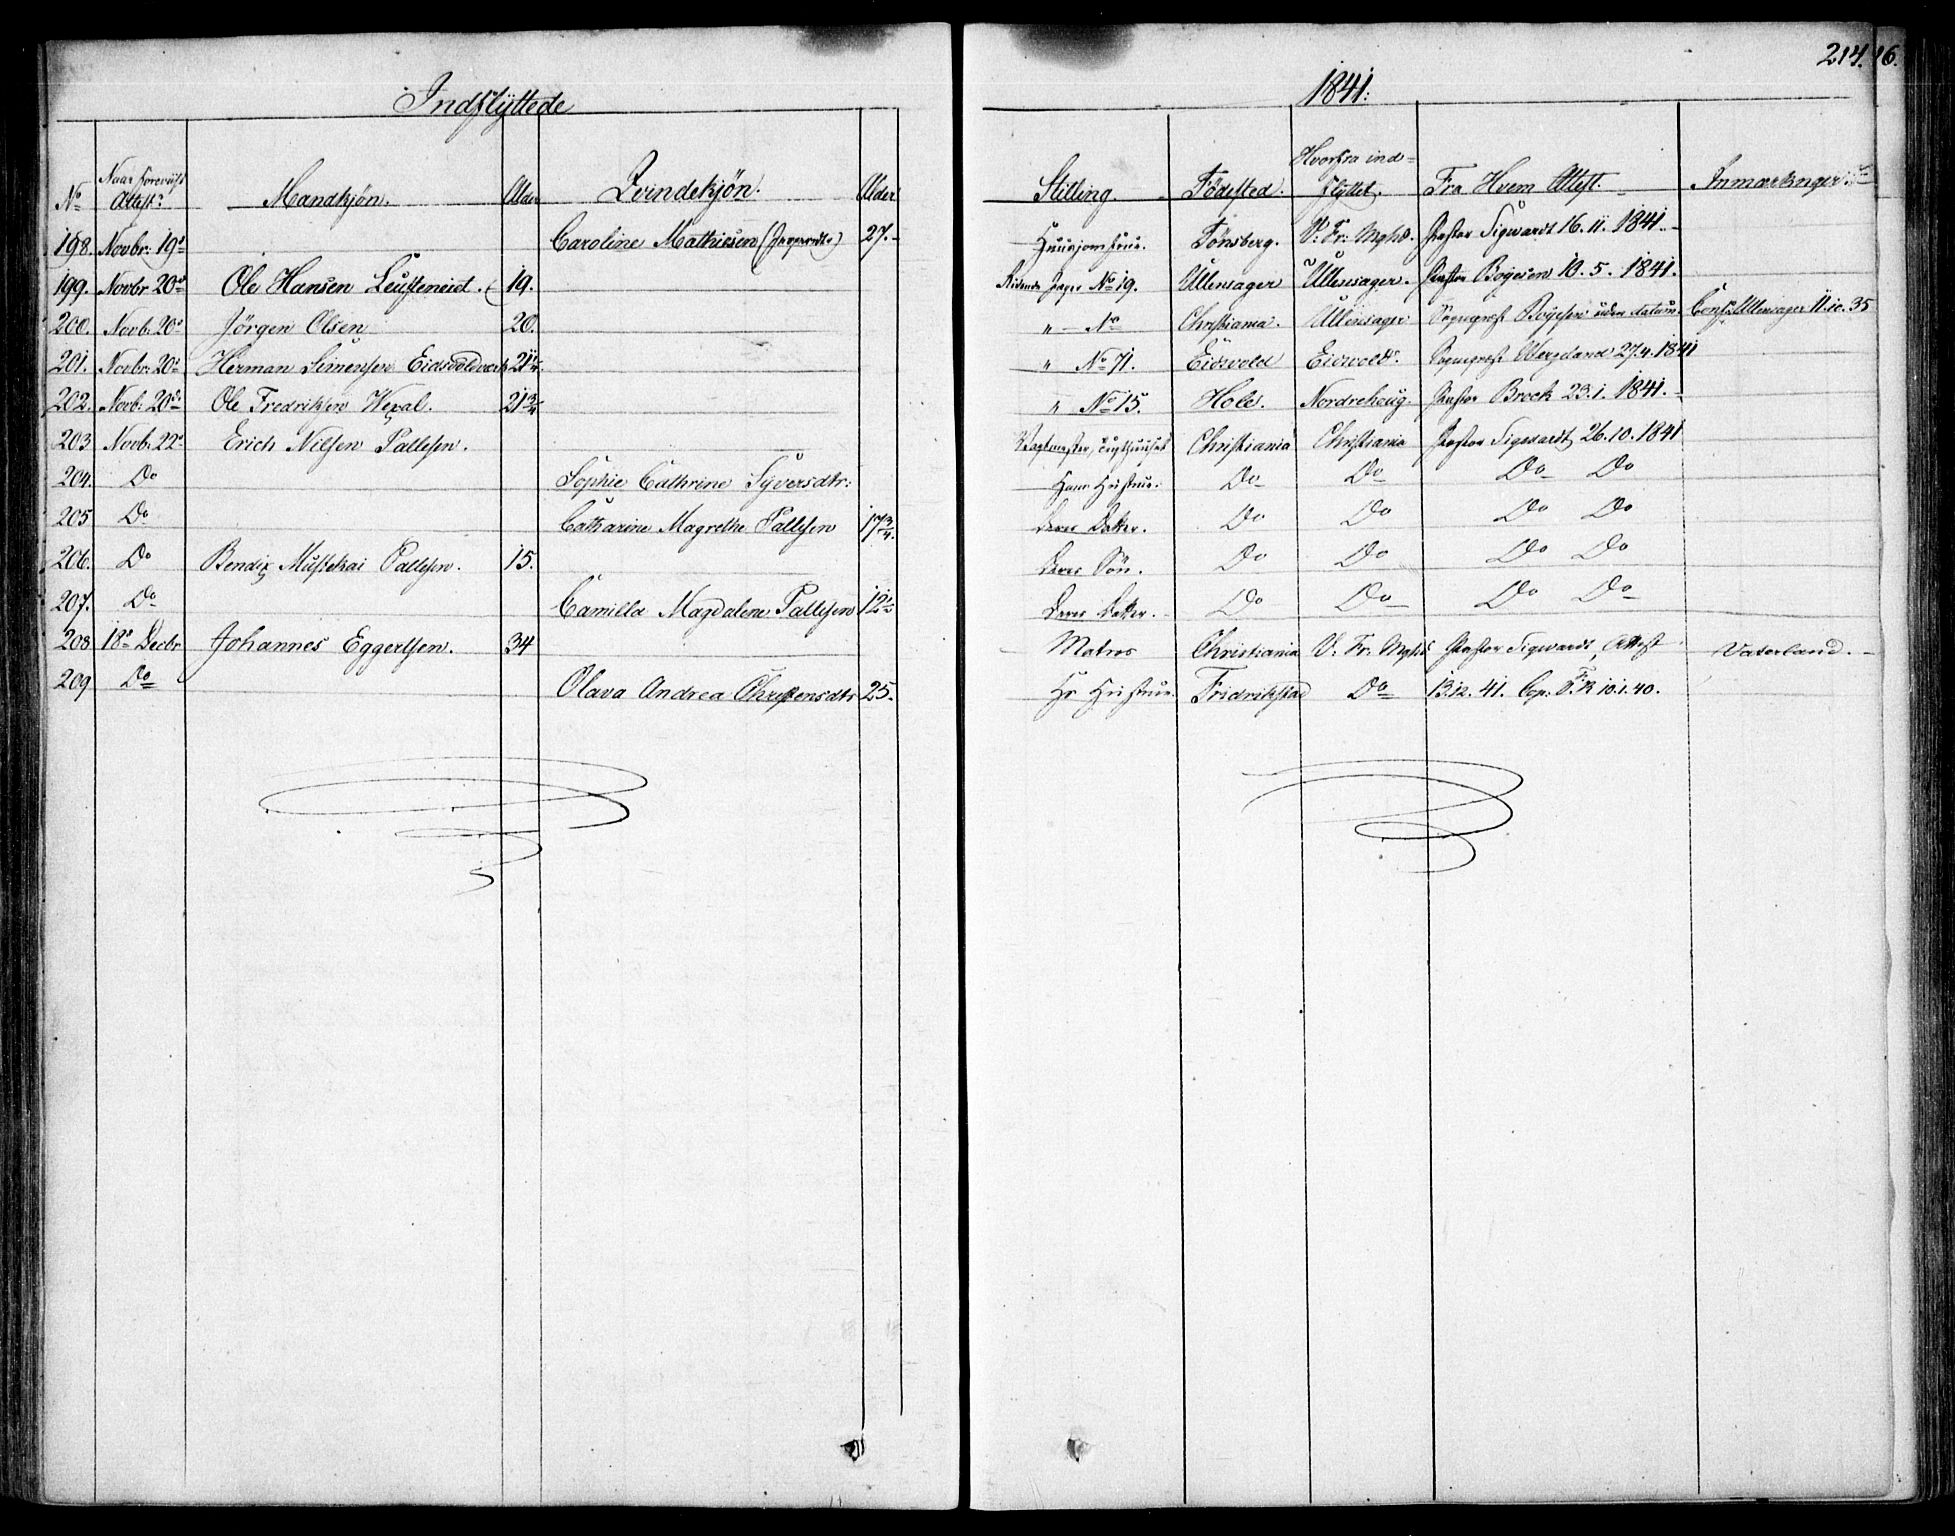 214. 16.
Indflyttede 1841:
No Naar forevist Attest? Mandkjøn. Alder Qvindekjøn. Alder Stilling. Födested. Hvorfra indflyttet. Fra Hvem Attest. Anmærkninger
198. Novbr: 19de Caroline Mathiesen 27. Tönsberg. V: Fr: Mghd. Pastor Sigwardt 16. 11. 1841.
199. Novbr 20de Ole Hansen 19. Ridende Jæger No 19. Ullensager Ullensager. Pastor Boyesen 10. 5. 1841.
200. Novb. 20de Jörgen Olsen 20. " No Christiania. Ullensager Sognepræst Boyesen uden datum. Conf. Ullensager 11.10.35
201. Novbr: 20de Herman Simensen Eidsvoldverk 21¼. " No 71. Eidsvold Eidsvold. Sognepræst Wergeland 27.4.1841
202. Novb: 20de Ole Fredriksen Hexal. 21¾ " No 15. Hole. Nordrehoug. Pastor Brock 23. 1. 1841.
203 Novb. 22de Erich Nilsen Pallesen. Vagtmester, Tugthuuset Christiania Christiania Pastor Sigwardt 26. 10. 1841
204. Do Sophie Cathrine Syversdtr: Hans Hustrue. Do Do Do Do
205 Do Catharine Magrethe Pallesen 17¾. Deres Datter. Do Do Do Do
206. Do Bendix Pallesen. 15. Deres Sön. Do Do Do Do
207. Do Camilla Magdalene Pallesen 12½ Deres Datter. Do Do Do Do
208 18de Decbr Johannes Eggertsen. 34 Matros Christiania V: Fr: Mghd Pastor Sigwardt, Attest Vaterland.
209 Do Olava Andrea Christensdtr 25. Hs Hustrue. Fridrikstad Do 13.12. 41. Cop: 10.1.40.